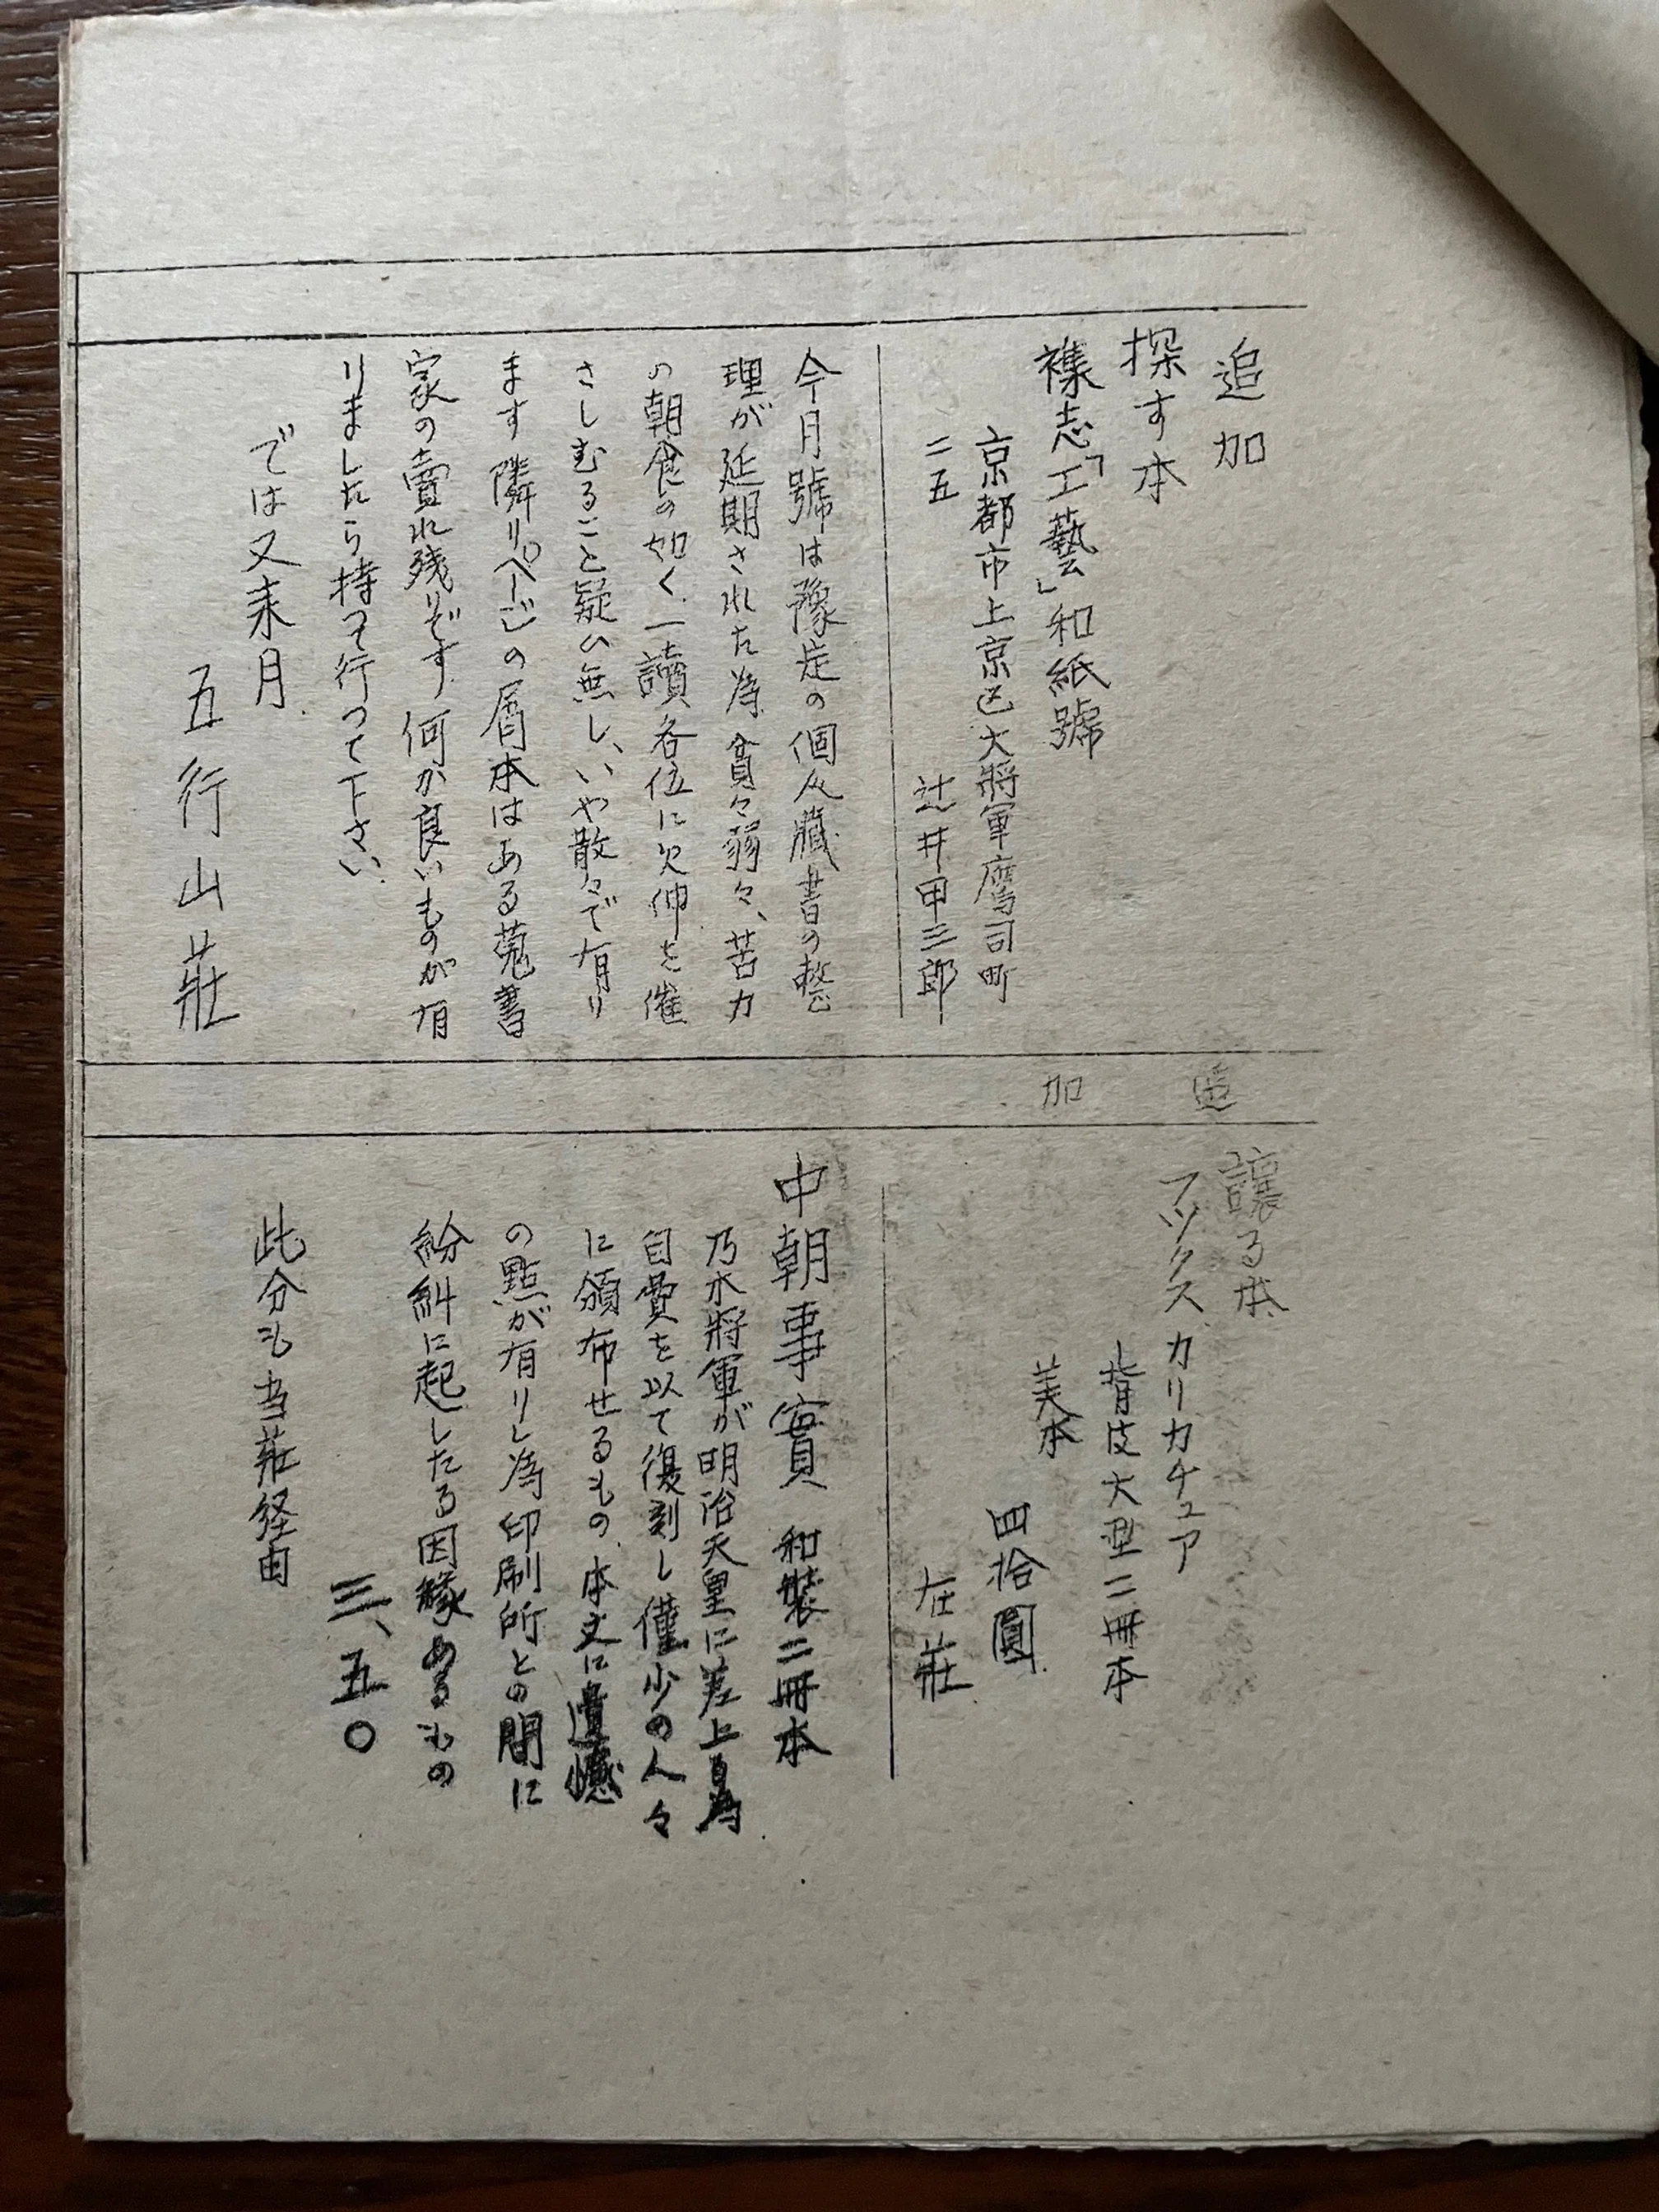 追加
探す本
襍志「工藝」和紙號
京都市上京区大將軍鷹司町
二五　辻井甲三郎
今月號は豫定の個人臓書の整
理が延期された為貧々弱々、苦力
の朝食の如く一讀各位に欠伸を催
さしむること疑ひ無し、いや散々で有り
ます隣りページの屑本はある蒐書
家の賣れ残りです何か良いものが有
りましたら持つて行つて下さい
では又来月
五行山莊
追加
讓る本
フックス カリカチュア
背皮大型二冊本
美本
四拾圓
在莊
中朝事實 和裝二冊本
乃木將軍が明治天皇に差上る為
自費を以て復刻し僅少の人々
に頒布せるもの、本文に遺憾
の點が有りし為印刷所との間に
紛糾に起したる因縁あるもの
三、五〇
此分も当莊経由